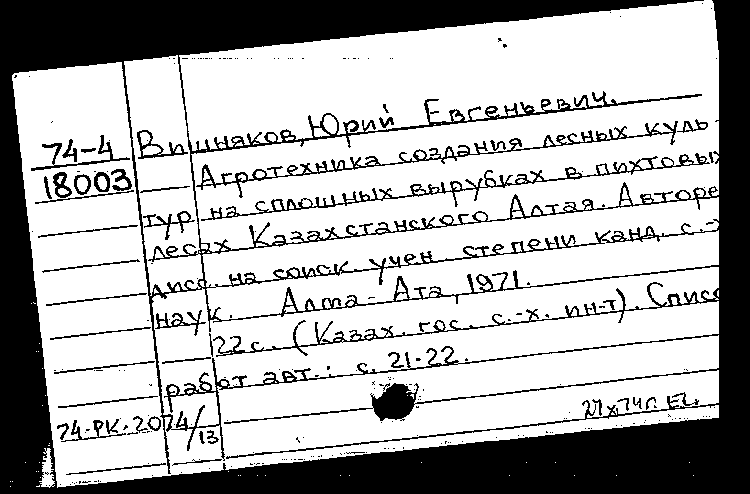 74-4 Вишняков, Юрий Евгеньевич.
18003 Агротехника создания лесных куль-
тур на сплошных вырубках в пихтовых
лесах Казахстанского Алтая. Авторе
дисс. на соиск. учен степени канд. с.-х
наук. Алма-Ата, 1971.
22с. (Казах. гос. с.-х. ин-т). Списо
работ авт.: с. 21-22.
74-РК-2074/13